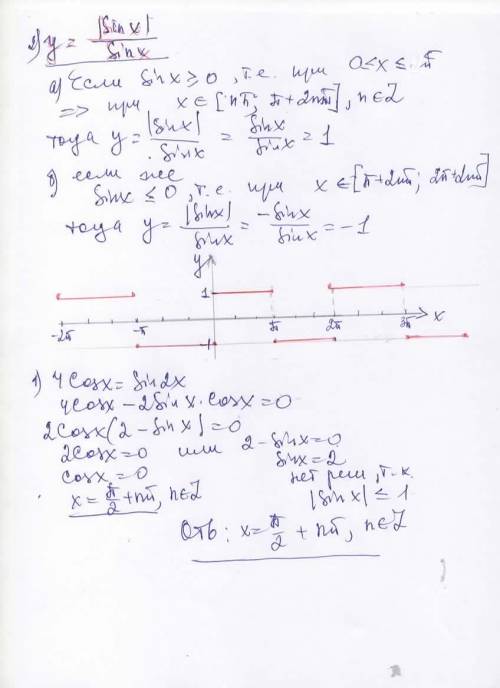 2) y = |Sin x| / Sin x
а) Если Sin x ≥ 0, т.е. при 0<x≤π
=> при x ∈ [nπ; π+2nπ], n∈Z
тогда y = |Sin x| / Sin x = Sin x / Sin x = 1
б) если же
Sin x ≤ 0, т.е. при x ∈ [π+2nπ; 2π+2nπ]
тогда y = |Sin x| / Sin x = -Sin x / Sin x = -1
y
1
-2π -π π 2π 3π x
-1
1) 4Cosx = Sin 2x
4Cosx - 2Sin x · Cosx = 0
2Cosx(2 - Sin x) = 0
2Cosx = 0 или 2 - Sin x = 0
Cosx = 0 Sin x = 2
x = π/2 + nπ, n∈Z нет реш, т.к.
|Sin x| ≤ 1
Отв: x = π/2 + nπ, n∈Z